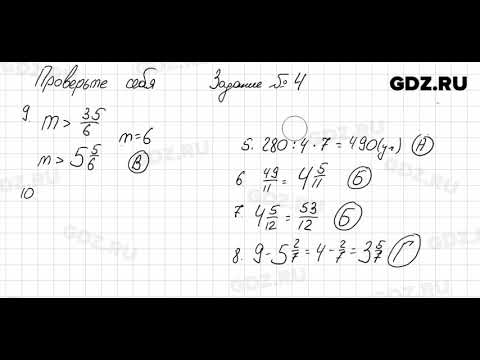 Проверьте себя
Задание № 4
GDZ.RU
9. m > 35/6
m = 6
m > 5 5/6
В
10
5. 280 : 4 · 7 = 490 (ул) А
6 49/11 = 4 5/11 Б
7 4 5/12 = 53/12 Б
8. 9 - 5 2/7 = 4 - 2/7 = 3 5/7 Г